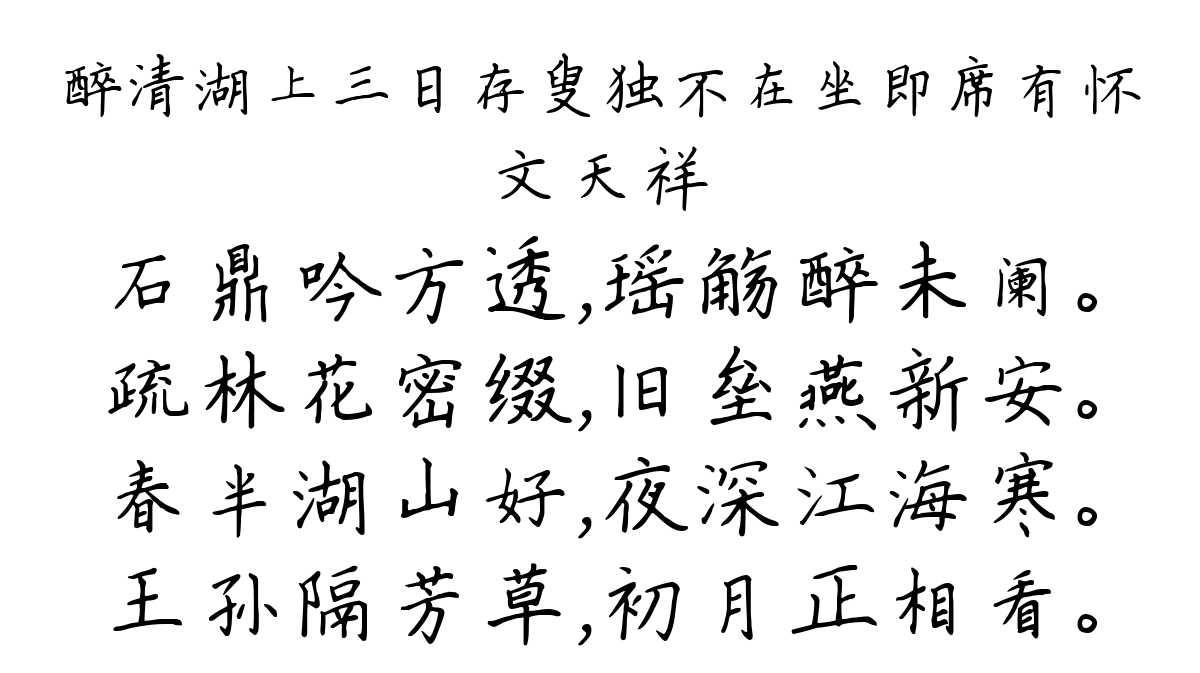 醉清湖上三日存叟独不在坐即席有怀
文天祥
石鼎吟方透,瑶觞醉未阑。
疏林花密缀,旧垒燕新安。
春半湖山好,夜深江海寒。
王孙隔芳草,初月正相看。